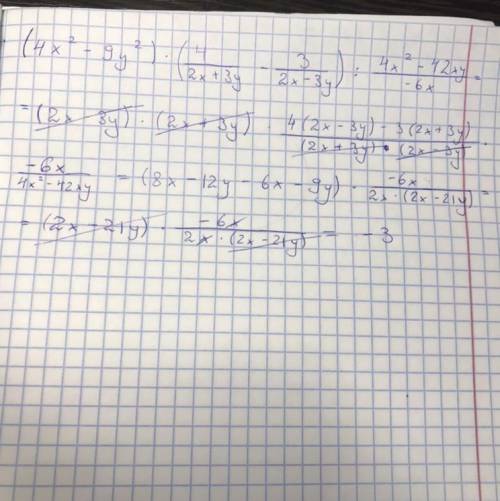 (4x² - 9y²) · (4/(2x+3y) - 3/(2x-3y)) : (4x² - 42xy)/(-6x) =
= (2x 3y) · (2x + 3y) · (4(2x - 3y) - 3(2x + 3y))/((2x + 3y) · (2x - 3y)) ·
(-6x)/(4x² - 42xy) = (8x - 12y - 6x - 9y) · (-6x)/(2x · (2x - 21y)) =
= (2x - 21y) · (-6x)/(2x · (2x - 21y)) = -3